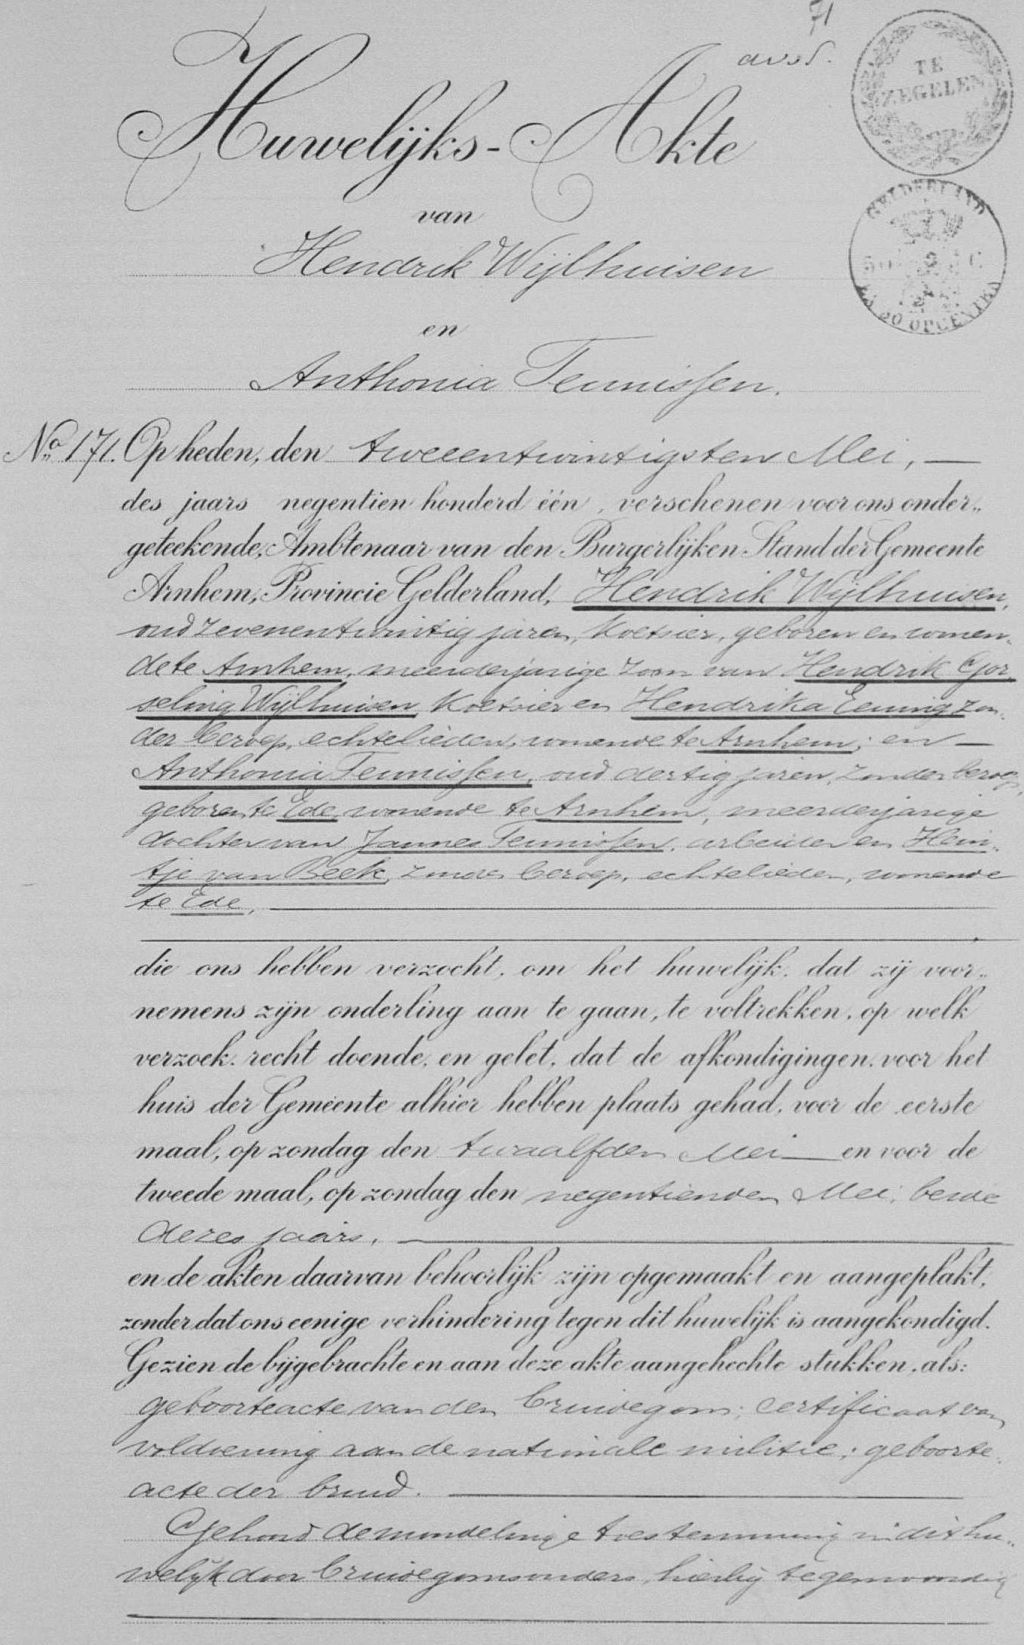 71
Huwelijks-Akte
TE
ZEGELEN
van
GELDERLAND
50 C
EN 50 OPCENTEN
Hendrik Wijlhuisen
en
Anthonia Teunissen.
No. 171. Op heden, den tweeentwintigsten Mei, —
des jaars negentien honderd één, verschenen voor ons onder-
geteekende, Ambtenaar van den Burgerlijken Stand der Gemeente
Arnhem, Provincie Gelderland, Hendrik Wijlhuisen,
oud zevenentwintig jaren, koetsier, geboren en wonen-
de te Arnhem, meerderjarige zoon van Hendrik Gos
seling Wijlhuisen, koetsier en Hendrika Eening zon-
der beroep, echtelieden, wonende te Arnhem; en —
Anthonia Teunissen, oud dertig jaren, zonder beroep,
geboren te Ede, wonende te Arnhem, meerderjarige
dochter van Jannes Teunissen, arbeider en Hein-
tje van Beek, zonder beroep, echtelieden, wonende
te Ede,
die ons hebben verzocht, om het huwelijk, dat zij voor-
nemens zijn onderling aan te gaan, te voltrekken, op welk
verzoek, recht doende, en gelet, dat de afkondigingen, voor het
huis der Gemeente alhier hebben plaats gehad, voor de eerste
maal, op zondag den twaalfden Mei — en voor de
tweede maal, op zondag den negentienden Mei, beide
dezes jaars,
en de akten daarvan behoorlijk zijn opgemaakt en aangeplakt,
zonder dat ons eenige verhindering tegen dit huwelijk is aangekondigd.
Gezien de bijgebrachte en aan deze akte aangehechte stukken, als:
geboorteacte van den bruidegom; certificaat van
voldoening aan de nationale militie; geboorte-
acte der bruid.
Gehoord de mondelinge toestemming in dit hu-
welijk door bruidegomsouders, hierbij tegenwoordig